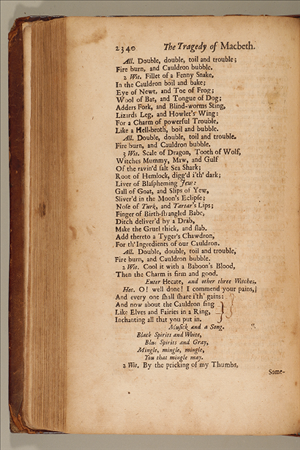 2340 The Tragedy of Macbeth.
All. Double, double, toil and trouble;
Fire burn, and Cauldron bubble.
2 Wit. Fillet of a Fenny Snake,
In the Cauldron boil and bake;
Eye of Newt, and Toe of Frog;
Wool of Bat, and Tongue of Dog;
Adders Fork, and Blind-worms Sting,
Lizards Leg, and Howlet's Wing:
For a Charm of powerful Trouble,
Like a Hell-broth, boil and bubble.
All. Double, double, toil and trouble,
Fire burn, and Cauldron bubble.
3 Wit. Scale of Dragon, Tooth of Wolf,
Witches Mummy, Maw, and Gulf
Of the ravin'd salt Sea Shark;
Root of Hemlock, digg'd i'th' dark;
Liver of Blaspheming Jew:
Gall of Goat, and Slips of Yew,
Sliver'd in the Moon's Eclipse;
Nose of Turk, and Tartar's Lips;
Finger of Birth-strangled Babe,
Ditch deliver'd by a Drab,
Make the Gruel thick, and slab.
Add thereto a Tyger's Chawdron,
For th'Ingredients of our Cauldron.
All. Double, double, toil and trouble,
Fire burn, and Cauldron bubble.
2 Wit. Cool it with a Baboon's Blood,
Then the Charm is firm and good.
Enter Hecate, and other three Witches.
Hec. O! well done! I commend your pains,
And every one shall share i'th' gains:
And now about the Cauldron sing
Like Elves and Fairies in a Ring,
Inchanting all that you put in.
Musick and a Song.
Black Spirits and White,
Blue Spirits and Gray,
Mingle, mingle, mingle,
You that mingle may.
2 Wit. By the pricking of my Thumbs,
Some-